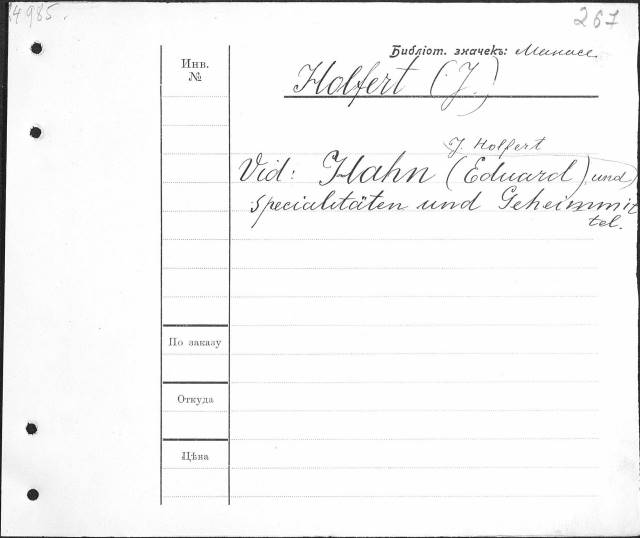 4985.
267
Библіот. значекъ: Манасе
Инв.
№
Holfert (J.)
J. Holfert
Vid: Hahn (Eduard) und
Specialitäten und Geheimmit
tel.
По заказу
Откуда
Цѣна